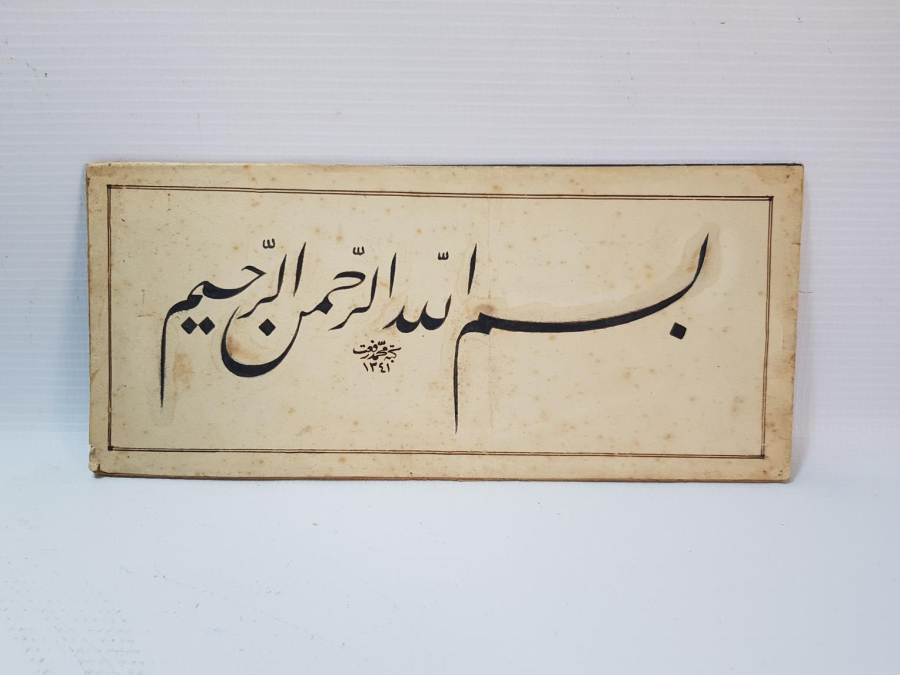 بسم اللّٰه الرّحمن الرّحيم
كتبه محمّد رفعت
١٣٤١